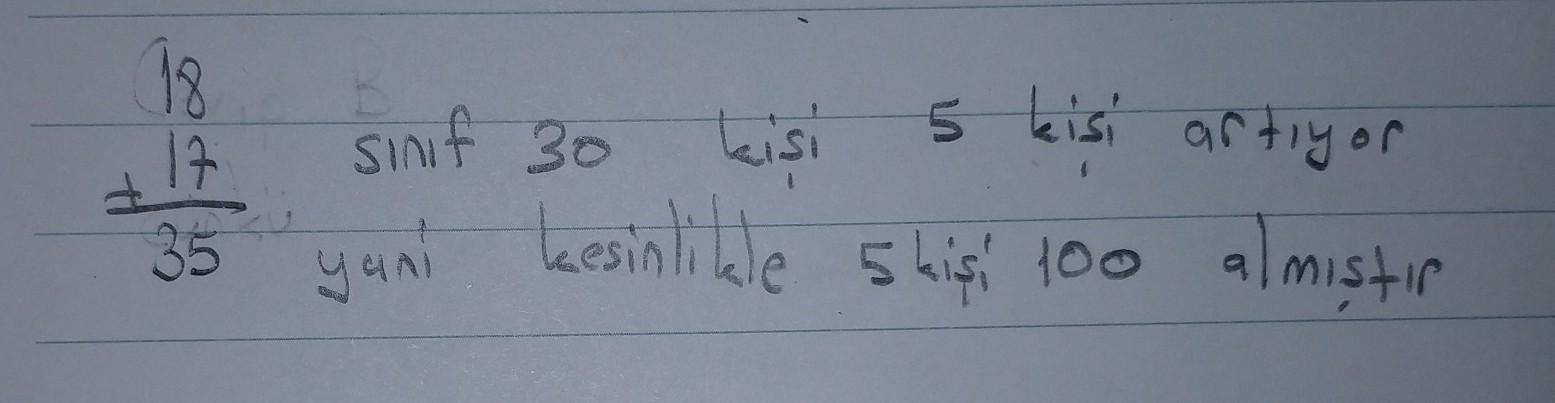 18
+ 17 sınıf 30 kişi 5 kişi artıyor
35 yani kesinlikle 5 kişi 100 almıştır